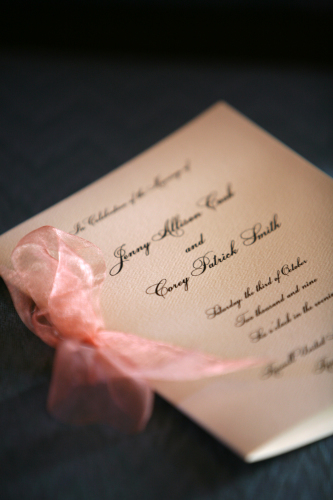 In Celebration of the Marriage of
Jenny Allison Cash
and
Corey Patrick Smith
Saturday the third of October
Two thousand and nine
Six o'clock in the evening
United